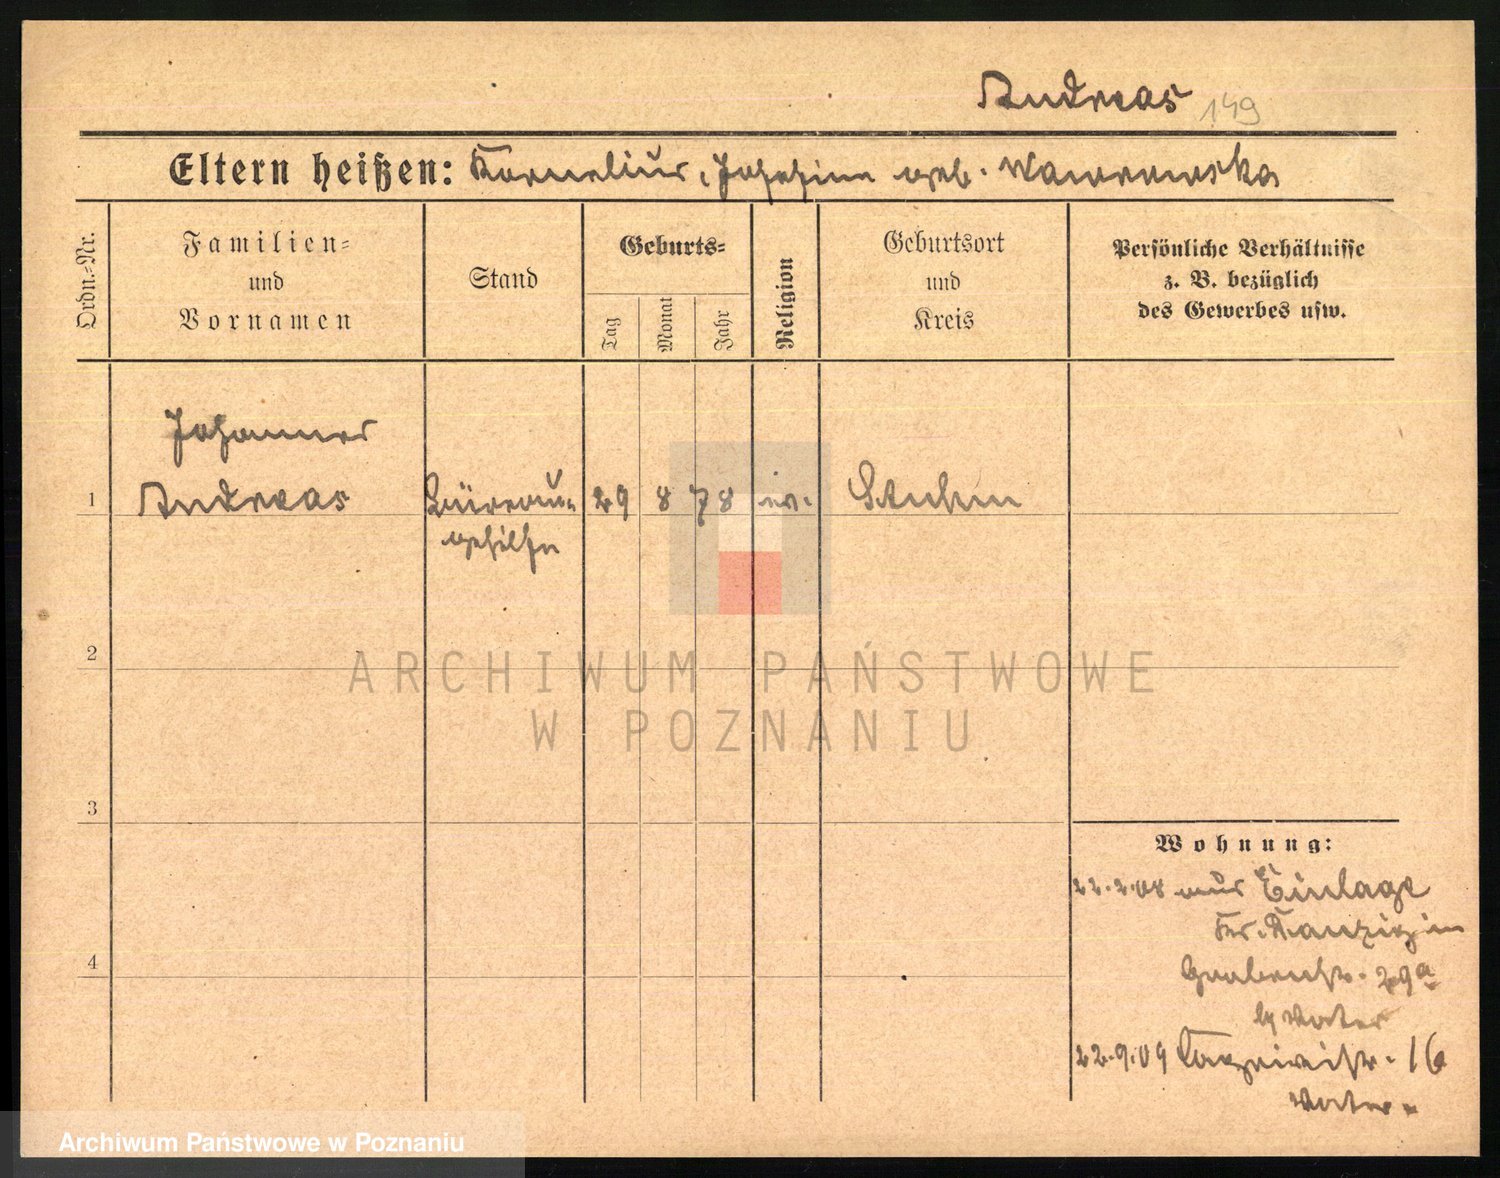 Andreas 149
Eltern heißen: Kornelius, Josephine geb. Wawrowska
Ordn.=Nr.
Familien=
und
Vornamen
Stand
Geburts=
Tag
Monat
Jahr
Religion
Geburtsort
und
Kreis
Persönliche Verhältnisse
z. B. bezüglich
des Gewerbes usw.
Johannes
1 Andreas Büreau= 29 8 78 ev. Stuhm
gehilfe
2
3
4
Wohnung:
22.2.08 aus Einlage
Kr. Danzig in
Grabenstr. 29a
b/ Vater
22.9.09 16
Vater.
ARCHIWUM PAŃSTWOWE
W POZNANIU
Archiwum Państwowe w Poznaniu